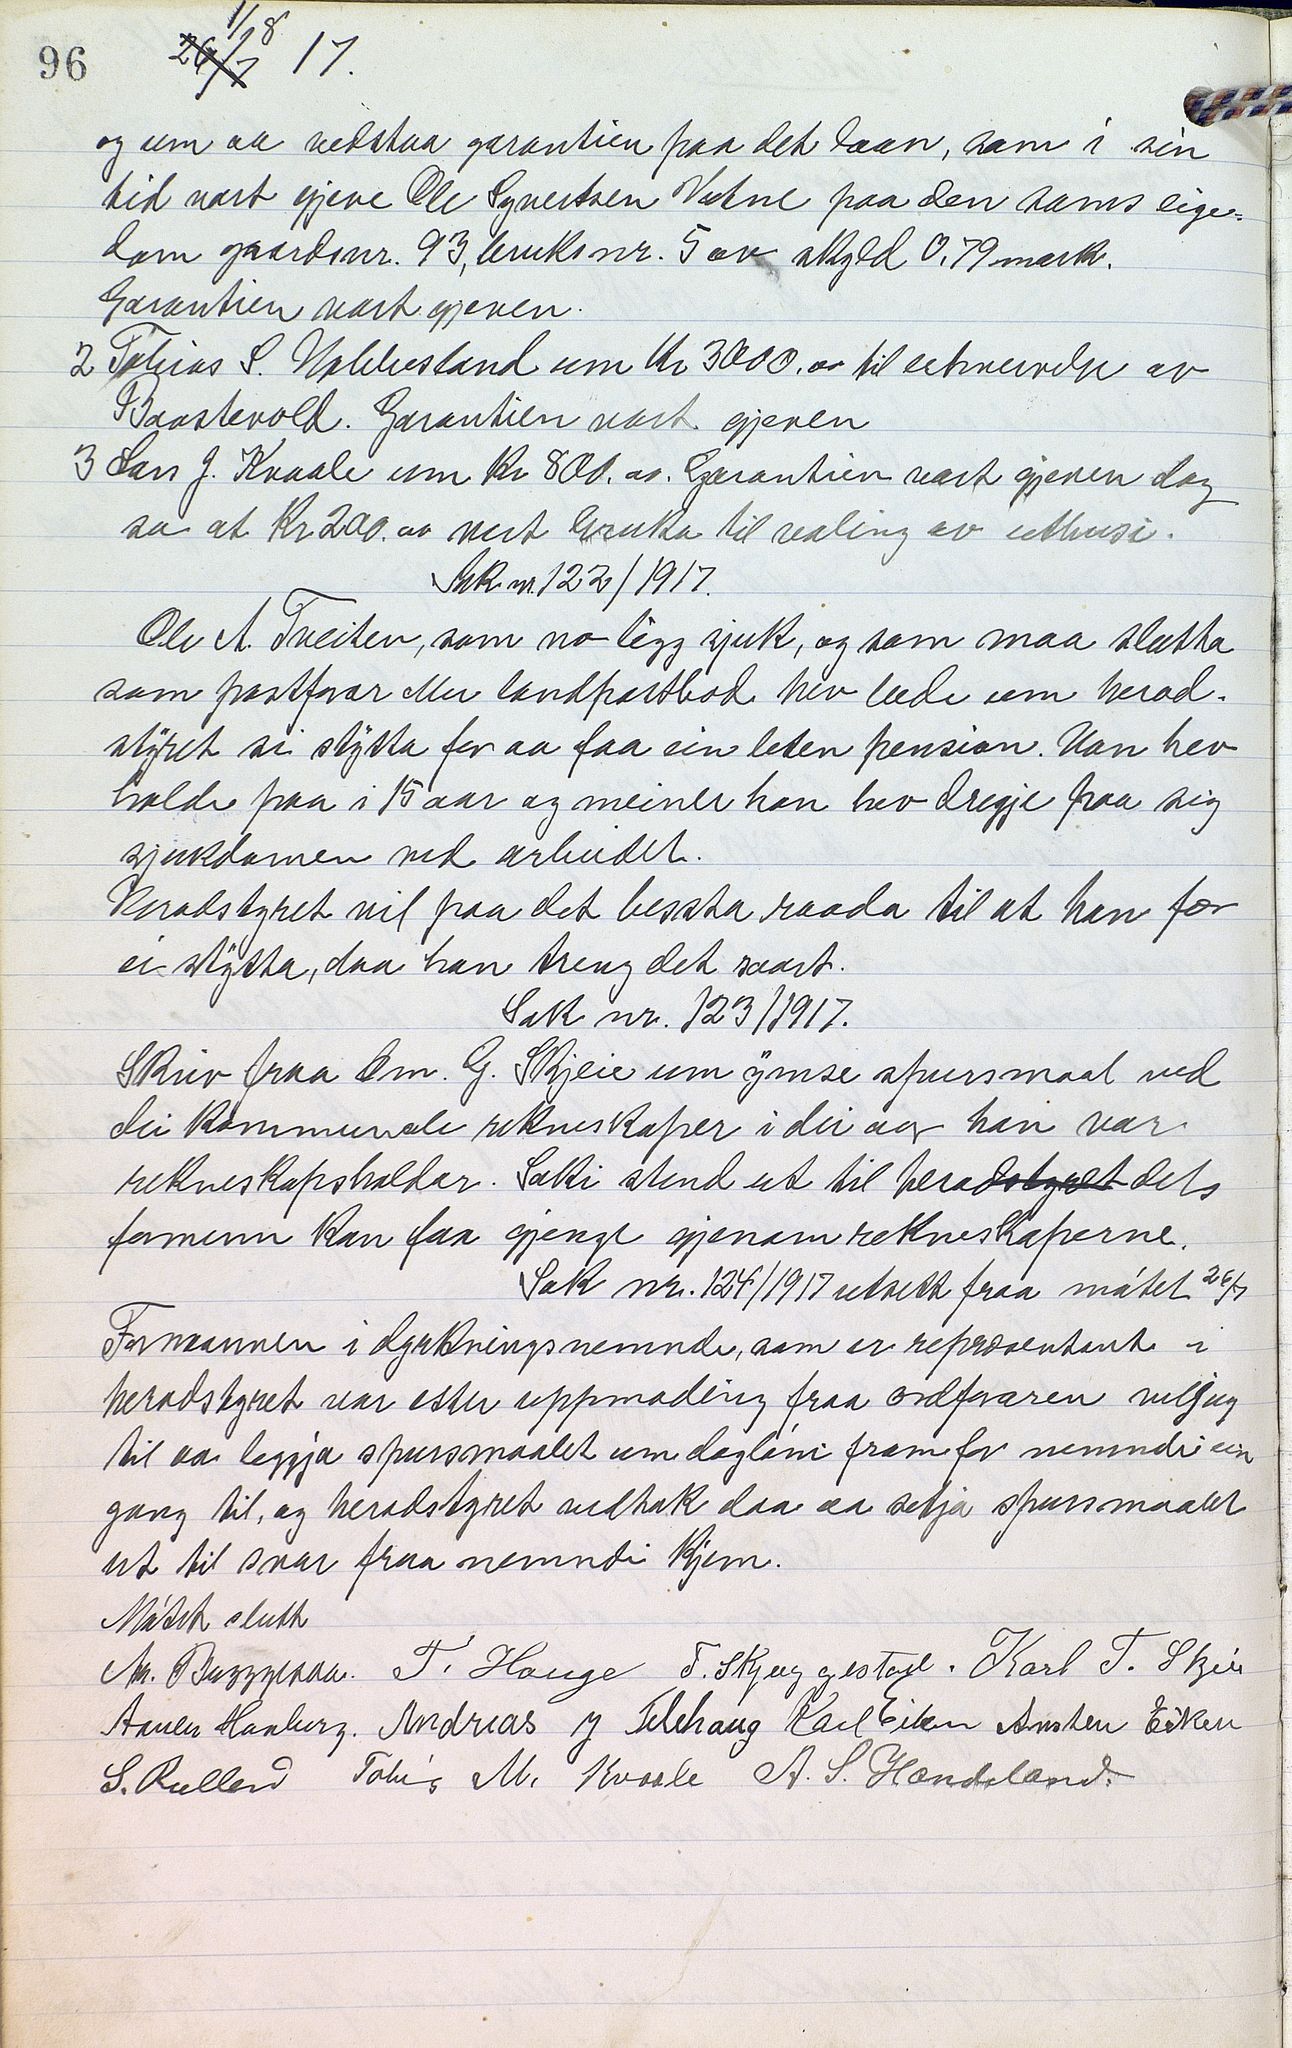 96 1/8 26/7 17.
og um aa vedstaa garantien paa det laan, som i sin
tid vart gjeve Ole Syvertsen Vatne paa den sams eige-
dom gaardsnr. 93, bruksnr. 5 av skyld 0.79 mark.
Garantien vart gjeven.
2 Tobias S. Hobbesland um Kr 3000.00 til utbreidelse av
Baastevold. Garantien vart gjeven
3 Lars J. Kvaale um Kr 800.00. Garantien vart gjeven dog
so at Kr 200.00 vert bruka til vøling av uthusi.
Sak nr. 122/1917.
Ole A. Tveiten, som no ligg sjuk, og som maa slutta
som postførar eller landpostbod hev bede um herad-
styret si stytta for aa faa ein liten pension. Han hev
halde paa i 15 aar og meiner han hev dregje paa sig
sjukdomen ved arbeidet.
Heradstyret vil paa det bessta raada til at han fær
ei stytta, daa han treng det saart.
Sak nr. 123/1917.
Skriv fraa Om. G. Skjeie um ymse spursmaal ved
dei kommunale rekneskaper i dei aar han var
rekneskapshaldar. Saki stend ut til heradstyret dets
formenn kan faa gjenge gjenom rekneskaperne.
Sak nr. 124/1917 utsett fraa møtet 26/7
Formannen i dyrkningsnemnde, som er representant i
heradstyret var etter uppmoding fraa ordføraren viljug
til aa leggja spursmaalet um dagløni fram for nemndi ein
gong til, og heradstyret vedtok daa aa setja spursmaalet
ut til svar fraa nemndi kjem.
Møtet slutt
T. Hauge T. Skjeggestad. Karl T. Skjeie
Hauberg. Andreas J Telhaug Karl Eiken Austen Eiken
S. Rulland Tobias M. Kvaale A. S. Handeland.